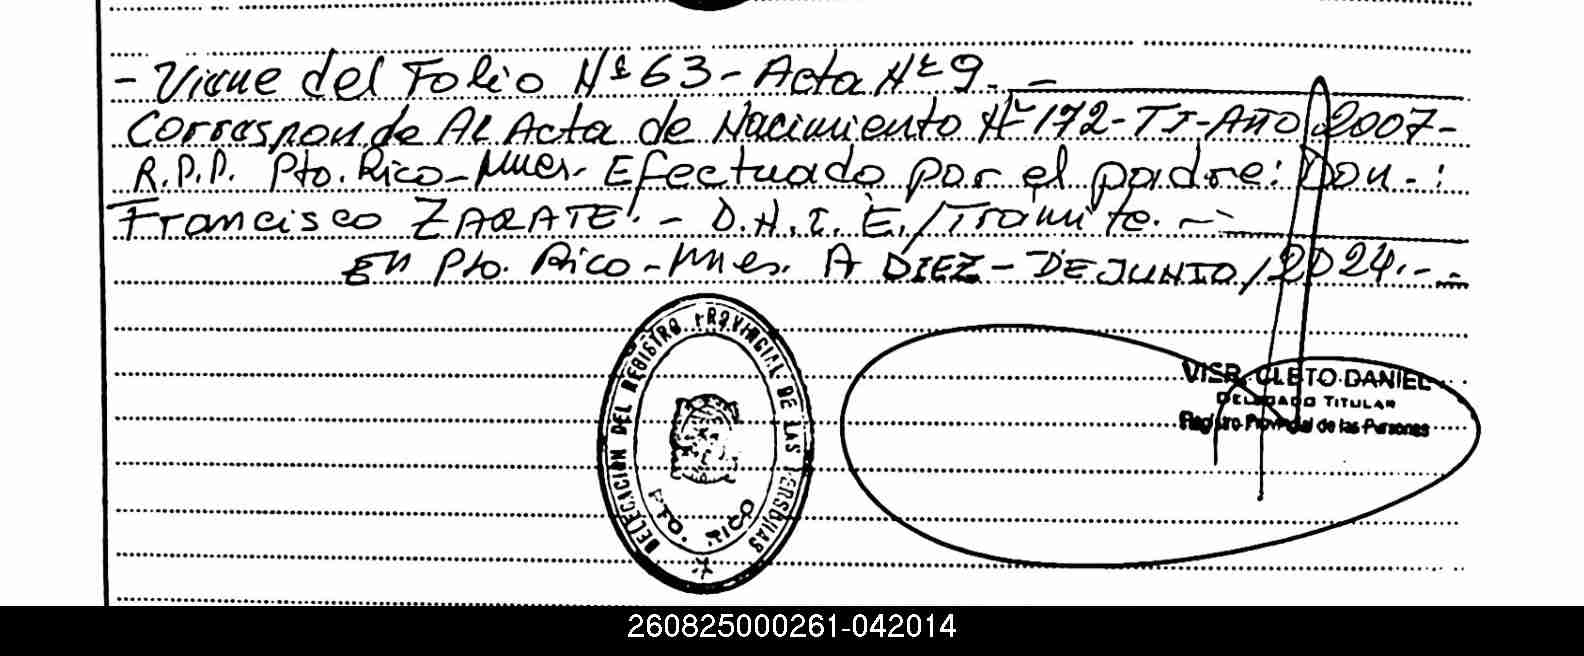 - Viene del Folio Nº 63 - Acta Nº 9. -
Corresponde Al Acta de Nacimiento Nº 172 - TI - Año 2007 -
R.P.P. Pto. Rico - Mnes. Efectuado por el padre: Don - :
Francisco ZARATE. - D.N.I. E./Trámite. -
En Pto. Rico - Mnes. A DIEZ - DE JUNIO / 2024. - -
DELEGACIÓN DEL REGISTRO PROVINCIAL DE LAS PERSONAS
PTO. RICO
VIER, CLETO DANIEL
DELEGADO TITULAR
Registro Provincial de las Personas
260825000261-042014